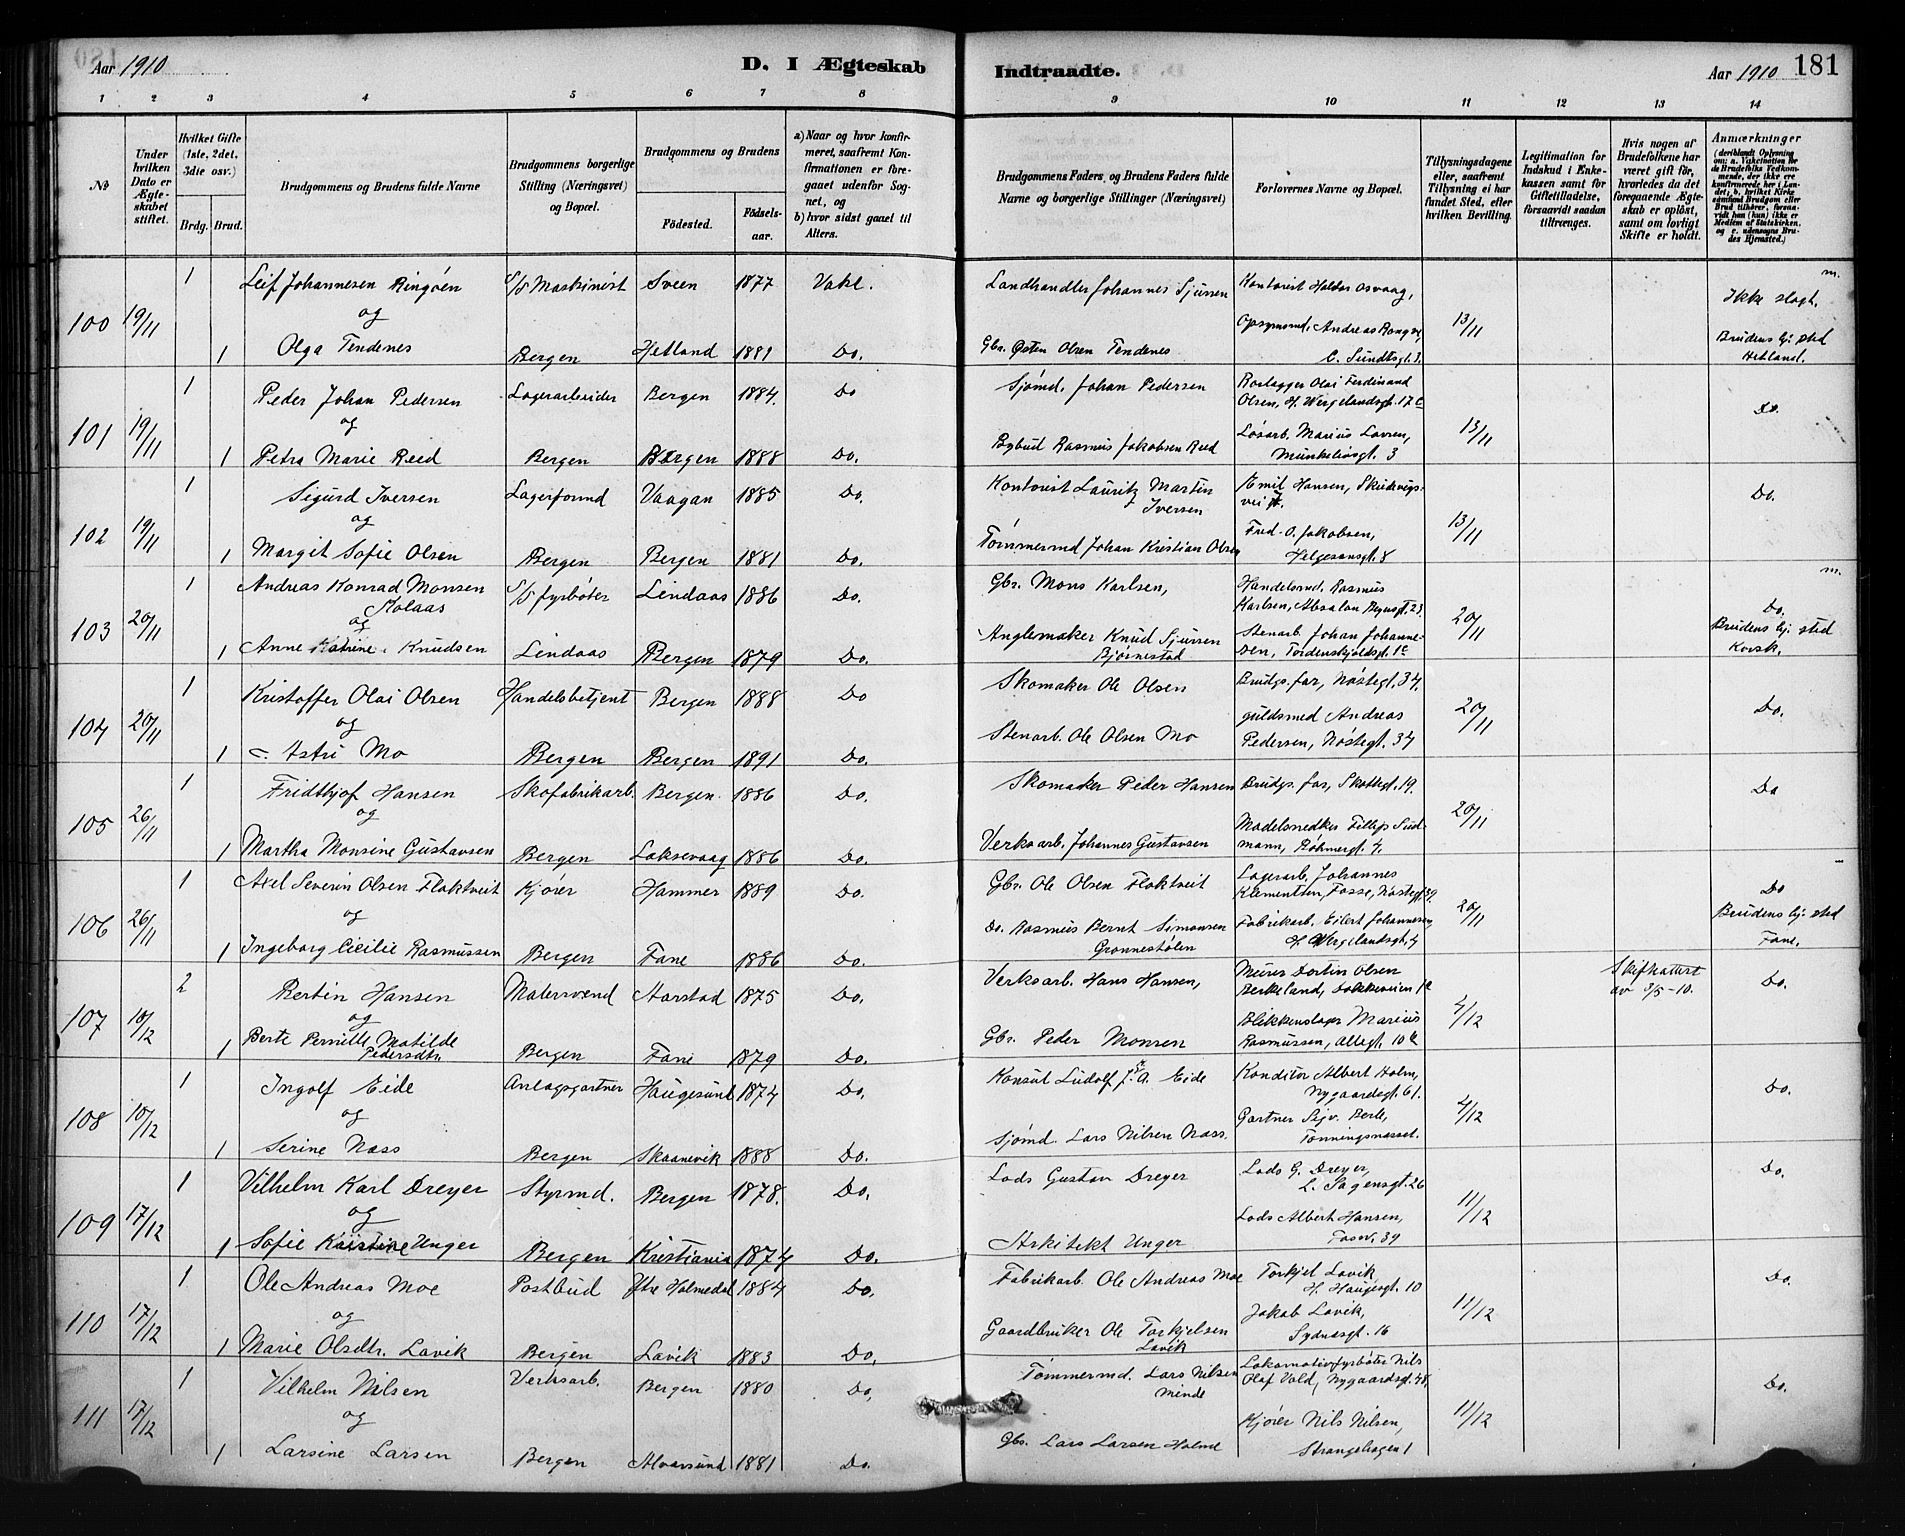 Aar 1910
D. I Ægteskab
Indtraadte.
Aar 1910
181
1 2 3 4 5 6 7 8 9 10 11 12 13 14
No
Under hvilken Dato er Ægteskabet stiftet.
Hvilket Gifte (1ste, 2det, 3die osv.)
Brdg. Brud.
Brudgommens og Brudens fulde Navne
Brudgommens borgerlige Stilling (Næringsvei) og Bopæl.
Brudgommens og Brudens
Fødested.
Fødselsaar.
a) Naar og hvor konfirmeret, saafremt Konfirmationen er foregaaet udenfor Sognet, og
b) hvor sidst gaaet til Alters.
Brudgommens Faders, og Brudens Faders fulde Navne og borgerlige Stillinger (Næringsvei)
Forlovernes Navne og Bopæl.
Tillysningsdagene eller, saafremt Tillysning ei har fundet Sted, efter hvilken Bevilling.
Legitimation for Indskud i Enkekassen samt for Giftetilladelse, forsaavidt saadan tiltrænges.
Hvis nogen af Brudefolkene har været gift før, hvorledes da det foregaaende Ægteskab er opløst, samt om lovligt Skifte er holdt.
Anmærkninger
(deriblandt Oplysning om: a. Vakcination for de Brudefolks Vedkommende, der ikke ere konfirmerede her i Landet; b. hvilket Kirkesamfund Brudgom eller Brud tilhører, forsaavidt han (hun) ikke er Medlem af Statskirken, og c. udensogns Brudes Hjemsted.)
100 19/11 1 Leif Johannesen Ringøen S/S Maskinist Sveen 1877 Vakl. Landhandler Johannes Sjursen Kontorist Haldor Osvaag, 13/11 m. Ikke slægt.
og Opsynsmd. Andreas Rong
1 Olga Tendenes Bergen Hetland 1881 Do. Gbr. Østen Olsen Tendenes C. Sundtsgt. 3. Brudens hj: sted Hetland.
101 19/11 1 Peder Johan Pedersen Lagerarbeider Bergen 1884. Do Sjømd. Johan Pedersen Olai Ferdinand Olsen, H. Wergelandsgt. 17c 13/11 Do.
og
1 Petra Marie Reed Bergen Bergen 1888 Do. Bybud Rasmus Jakobsen Reed Løsarb. Marius Larsen, Munkelivsgt. 3
102 19/11 1 Sigurd Iversen Lagerformd Vaagan 1885 Do. Kontorist Lauritz Martin Iversen Emil Hansen, Skudevigsvei 13/11 Do.
og
1 Margit Sofie Olsen Bergen Bergen 1881 Do. Tømmermd Johan Kristian Olsen Fred. O. Jakobsen, Helgesensgt. 8
103 20/11 1 Andreas Konrad Monsen Kolaas S/S fyrbøter Lindaas 1886 Do. Gbr. Mons Karlsen, Handelsmd. Rasmus Karlsen, Absalon Beyersgt. 23 20/11 m. Do.
og
1 Anne Katrine Knudsen Lindaas Bergen 1879 Do. Anglemaker Knud Sjursen Bjørnestad Stenarb. Johan Johannesen, Tordenskjoldsgt. 1c Brudens hj: sted Korsk.
104 20/11 1 Kristoffer Olai Olsen Handelsbetjent Bergen 1888 Do Skomaker Ole Olsen Brudgs. far, Nøstegt. 34. 20/11 Do.
og
1 Astri Mo Bergen Bergen 1891 Do. Stenarb. Ole Olsen Mo guldsmed Andreas Pedersen, Nøstegt. 34
105 26/11 1 Fridthjof Hansen Skofabrikarb. Bergen. 1886 Do. Skomaker Peder Hansen Brudgs. far, Skottegt. 19. 20/11 Do
og
1 Martha Monsine Gustavsen Bergen Laksevaag 1886 Do. Verksarb. Johannes Gustavsen Modelsnedker Fillip Sudmann, Bøhmergt. 4.
106 26/11 1 Axel Severin Olsen Flaktveit Kjører Hammer 1889 Do. Gbr. Ole Olsen Flaktveit Lagerarb. Johannes Klementsen, Fosse, Nøstegt. 39. 20/11 Do
og
1 Ingeborg Cicilie Rasmussen Bergen Fane 1886 Do. Do. Rasmus Bernt Simonsen Grønnestølen Fabrikarb. Eilert Johannesen, H. Wergelandsgt. 4 Brudens hj: sted Fane.
107 10/12 2 Bertin Hansen Malersvend Aarstad 1875 Do. Verksarb. Hans Hansen, Murer Dortin Olsen Berkeland, Dokkeveien 1c 4/12 Skifteattest av 3/5-10. Do.
og
1 Berte Pernille Matilde Pedersdtr. Bergen Fane 1879 Do. Gbr. Peder Monsen Blikkenslager Marius Rasmussen, Allegt. 10b
108 10/12 1 Ingolf Eide Anlægsgartner Haugesund 1874 Do. Konsul Ludolf J. A. Eide Konditor Albert Holm, Nygaardsgt. 61. 4/12 Do.
og
1 Serine Næss Bergen Skaanevik 1888 Do. Sjømd. Lars Nilsen Næss. Gartner Sigv. Berle, Tonningsnæsset.
109 17/12 1 Vilhelm Karl Dreyer Styrmd. Bergen 1878. Do. Lods Gustav Dreyer Lods G. Dreyer, L. Sagensgt. 26 11/12 Do.
og
1 Sofie Kristine Unger Bergen Kristiania 1874 Do. Arkitekt Unger Lods Albert Hansen, 39
110 17/12 1 Ole Andreas Moe Postbud Ytre Holmedal 1884 Do. Fabrikarb. Ole Andreas Moe Torkjel Lavik H. Haugesgt. 10 11/12 Do.
og
1 Marie Olsdtr. Lavik Bergen Lavik 1883 Do. Gaardbruker Ole Torkjelsen Lavik Jakob Lavik, Sydnæsgt. 16
111 17/12 1 Vilhelm Nilsen Verksarb. Bergen 1880 Do. Tømmermd. Lars Nilsen Minde Lokomotivfyrbøter Nils Olaf Vold, Nygaardsgt. 48. 11/12 Do.
og
1 Larsine Larsen Bergen Alversund 1881 Do. Gbr. Lars Larsen Holme Kjører Nils Nilsen, Strangehagen 1